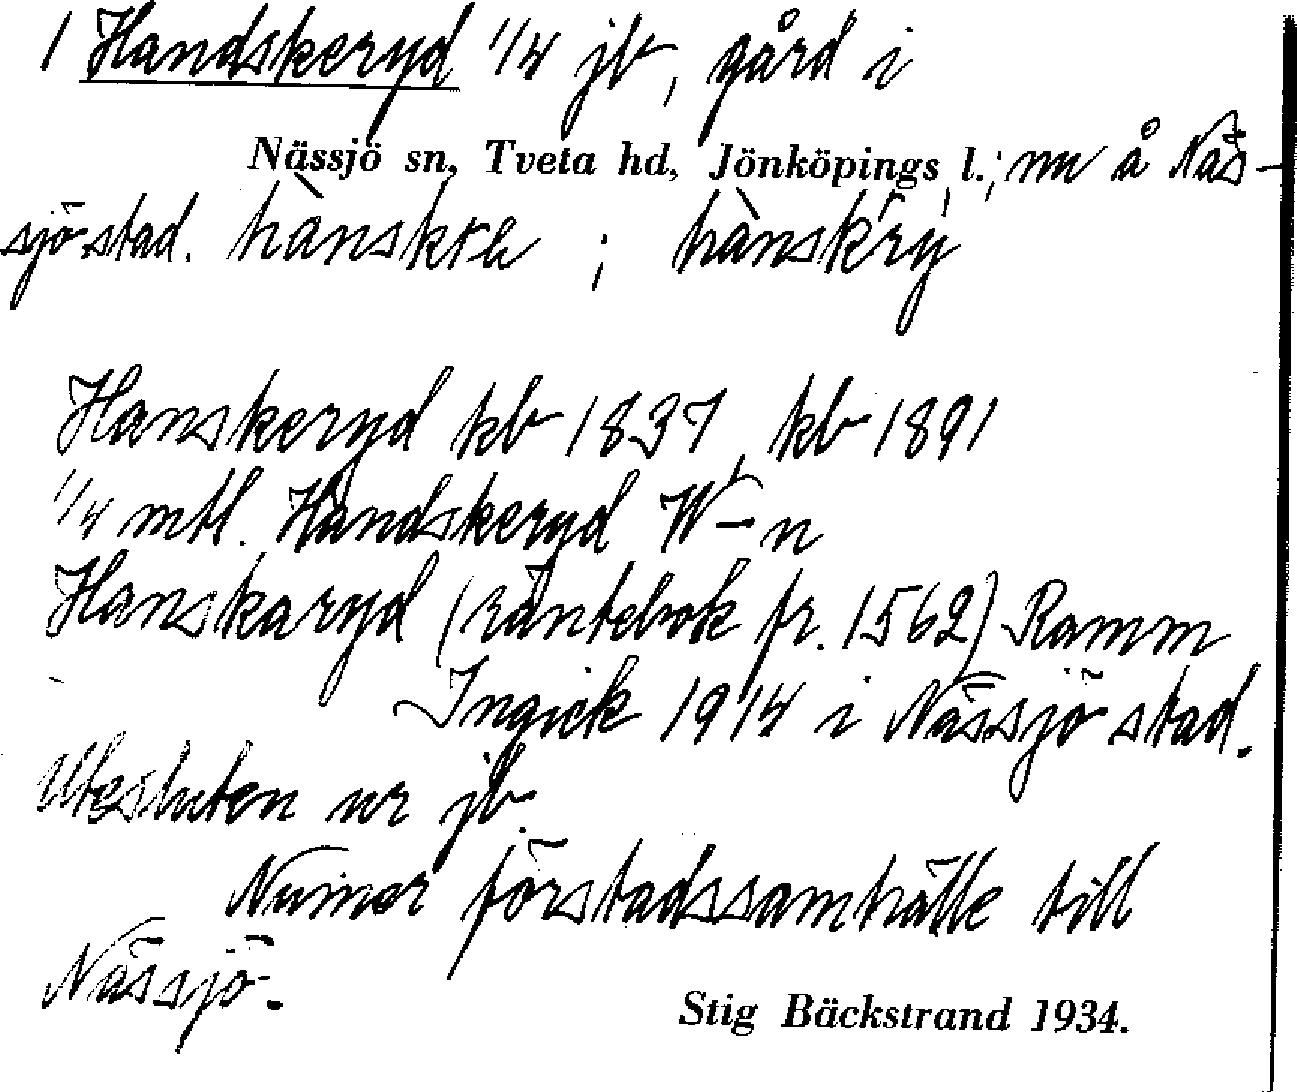 1 Handskeryd 1/4 jb, gård i
Nässjö sn, Tveta hd, Jönköpings l.; nu å Näs-
sjö stad. hànskrh ; hànskrý
Hanskeryd kb 1837, kb 1891
1/4 mtl. Handskeryd W-n
Hanskaryd (räntebok fr. 1562) Ramm
Ingick 1914 i Nässjö stad.
Utesluten ur jb.
Numer förstadssamhälle till
Nässjö.
Stig Bäckstrand 1934.